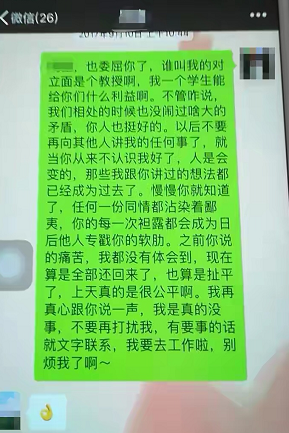 微信(26)
2017年9月10日 上午10:44
，也委屈你了，谁叫我的对
立面是个教授啊，我一个学生能
给你们什么利益啊。不管咋说，
我们相处的时候也没闹过啥大的
矛盾，你人也挺好的。以后不要
再向其他人讲我的任何事了，就
当你从来不认识我好了，人是会
变的，那些我跟你讲过的想法都
已经成为过去了。慢慢你就知道
了，任何一份同情都沾染着鄙
夷，你的每一次袒露都会成为日
后他人专戳你的软肋。之前你说
的痛苦，我都没有体会到，现在
算是全部还回来了，也算是扯平
了，上天真的是很公平啊。我再
真心跟你说一声，我是真的没
事，不要再打扰我，有要事的话
就文字联系，我要去工作啦，别
烦我了啊～